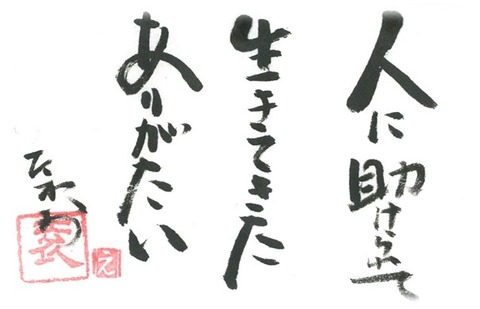 人に助けられて
生きてきた
ありがたい